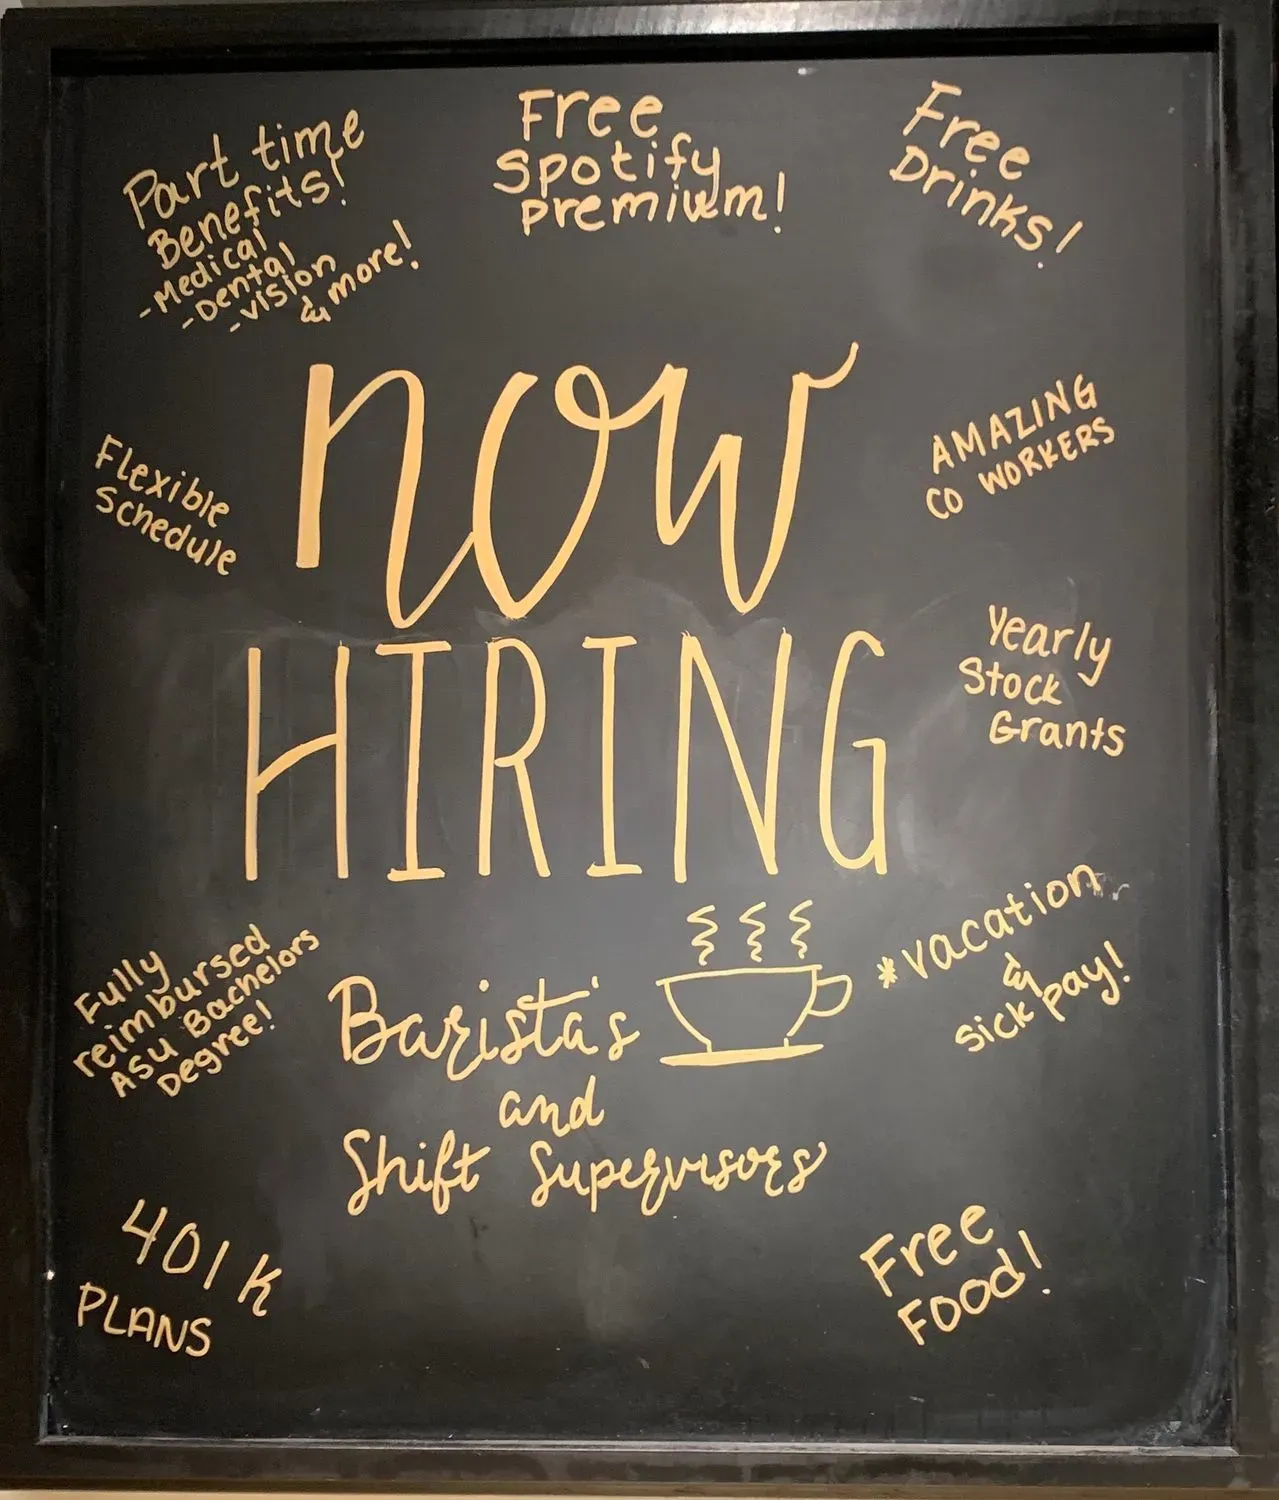 Part time
Benefits!
-Medical
-Dental
-vision
& more!
Free
Spotify
premium!
Free
Drinks!
now
HIRING
Flexible
Schedule
AMAZING
CO WORKERS
Yearly
Stock
Grants
Fully
reimbursed
ASU Bachelors
Degree!
Barista's
and
Shift Supervisors
*vacation
&
sick pay!
401K
PLANS
Free
FOOD!